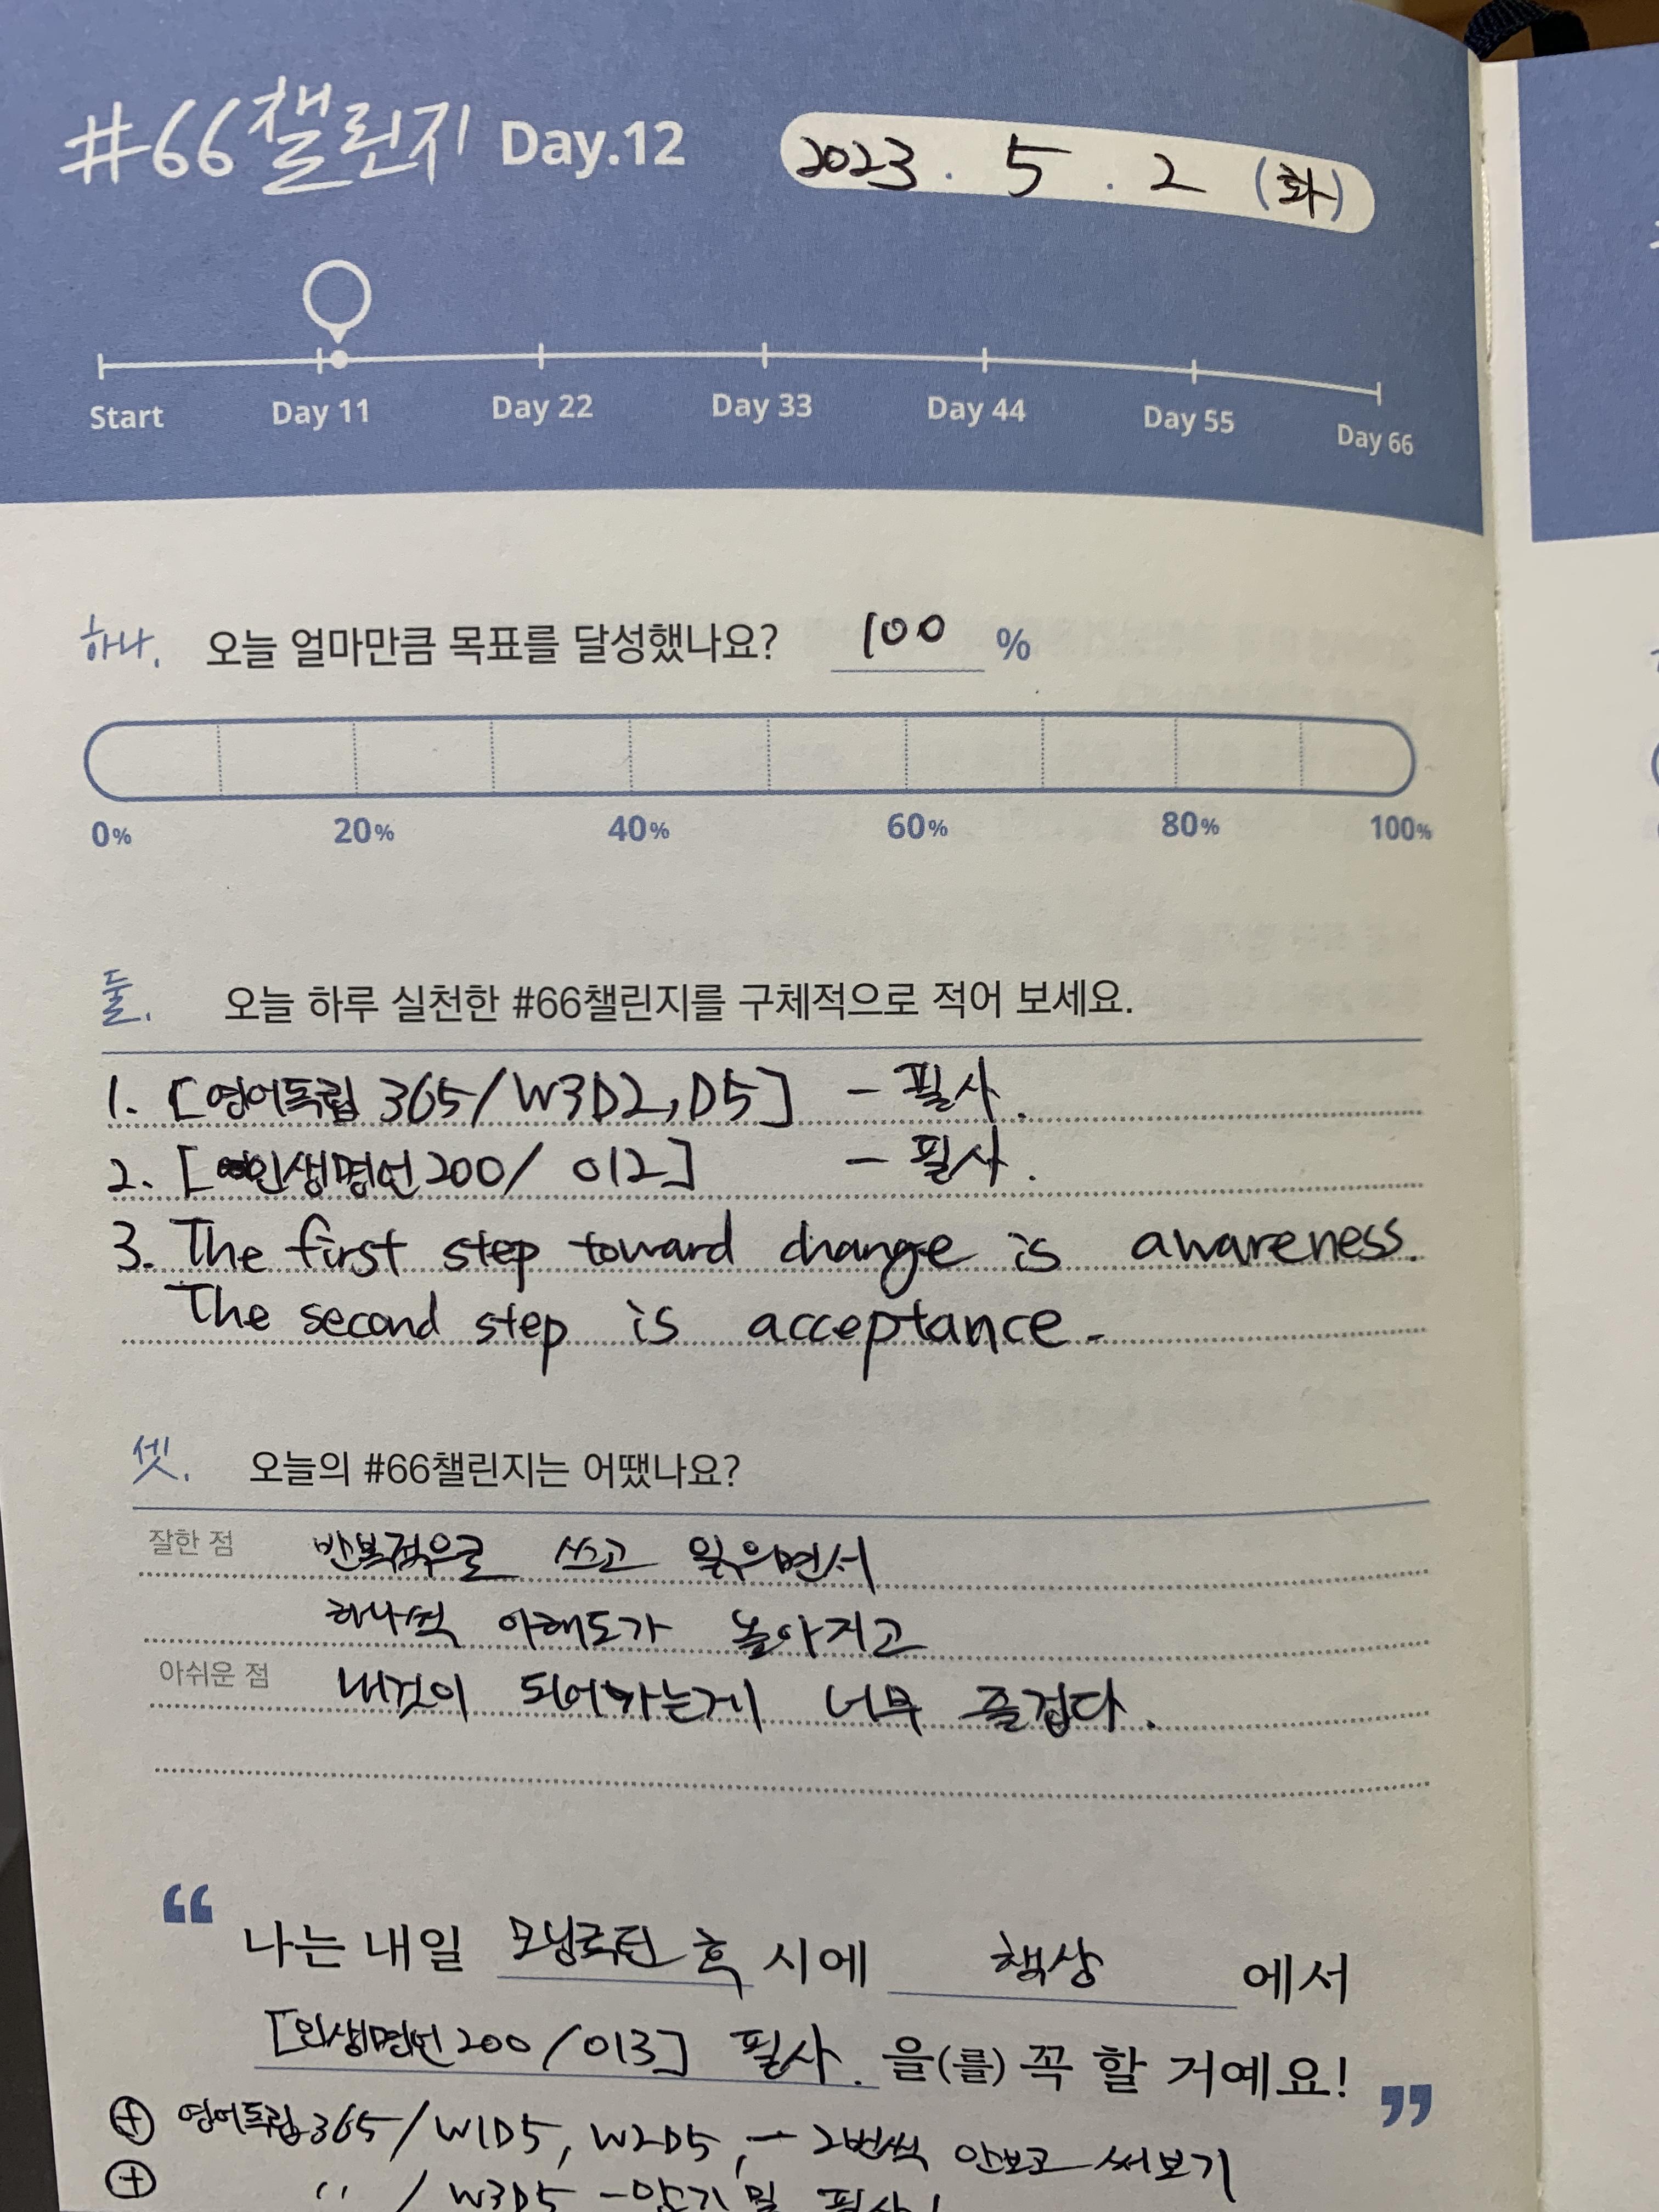 #66챌린지 Day.12 2023. 5. 2 (화)
Start Day 11 Day 22 Day 33 Day 44 Day 55 Day 66
하나. 오늘 얼마만큼 목표를 달성했나요? 100 %
0% 20% 40% 60% 80% 100%
둘. 오늘 하루 실천한 #66챌린지를 구체적으로 적어 보세요.
1. [영어독립 365/W3D2, D5] - 필사.
2. [인생명언 200/ 012] - 필사.
3. The first step toward change is awareness.
The second step is acceptance.
셋. 오늘의 #66챌린지는 어땠나요?
잘한 점 반복적으로 쓰고 읽으면서
하나씩 이해도가 높아지고
아쉬운 점 내것이 되어가는게 너무 즐겁다.
“ 나는 내일 모닝루틴 후 시에 책상 에서
[인생명언 200/013] 필사. 을(를) 꼭 할 거예요! ”
⊕ 영어독립 365/W1D5, W2D5, - 2번씩 안보고 써보기
⊕ 〃 / W3D5 - 암기 및 필사!